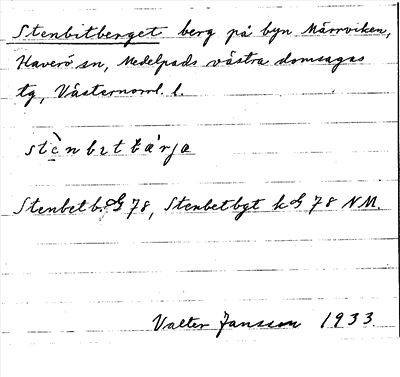 Stenbitberget berg på byn Märrviken,
Haverö sn, Medelpads västra domsagas
tg, Västernorrl. l.
stènbɩtbárja
Stenbetb. G 78, Stenbetbgt k G 78 NM.
Valter Jansson 1933.